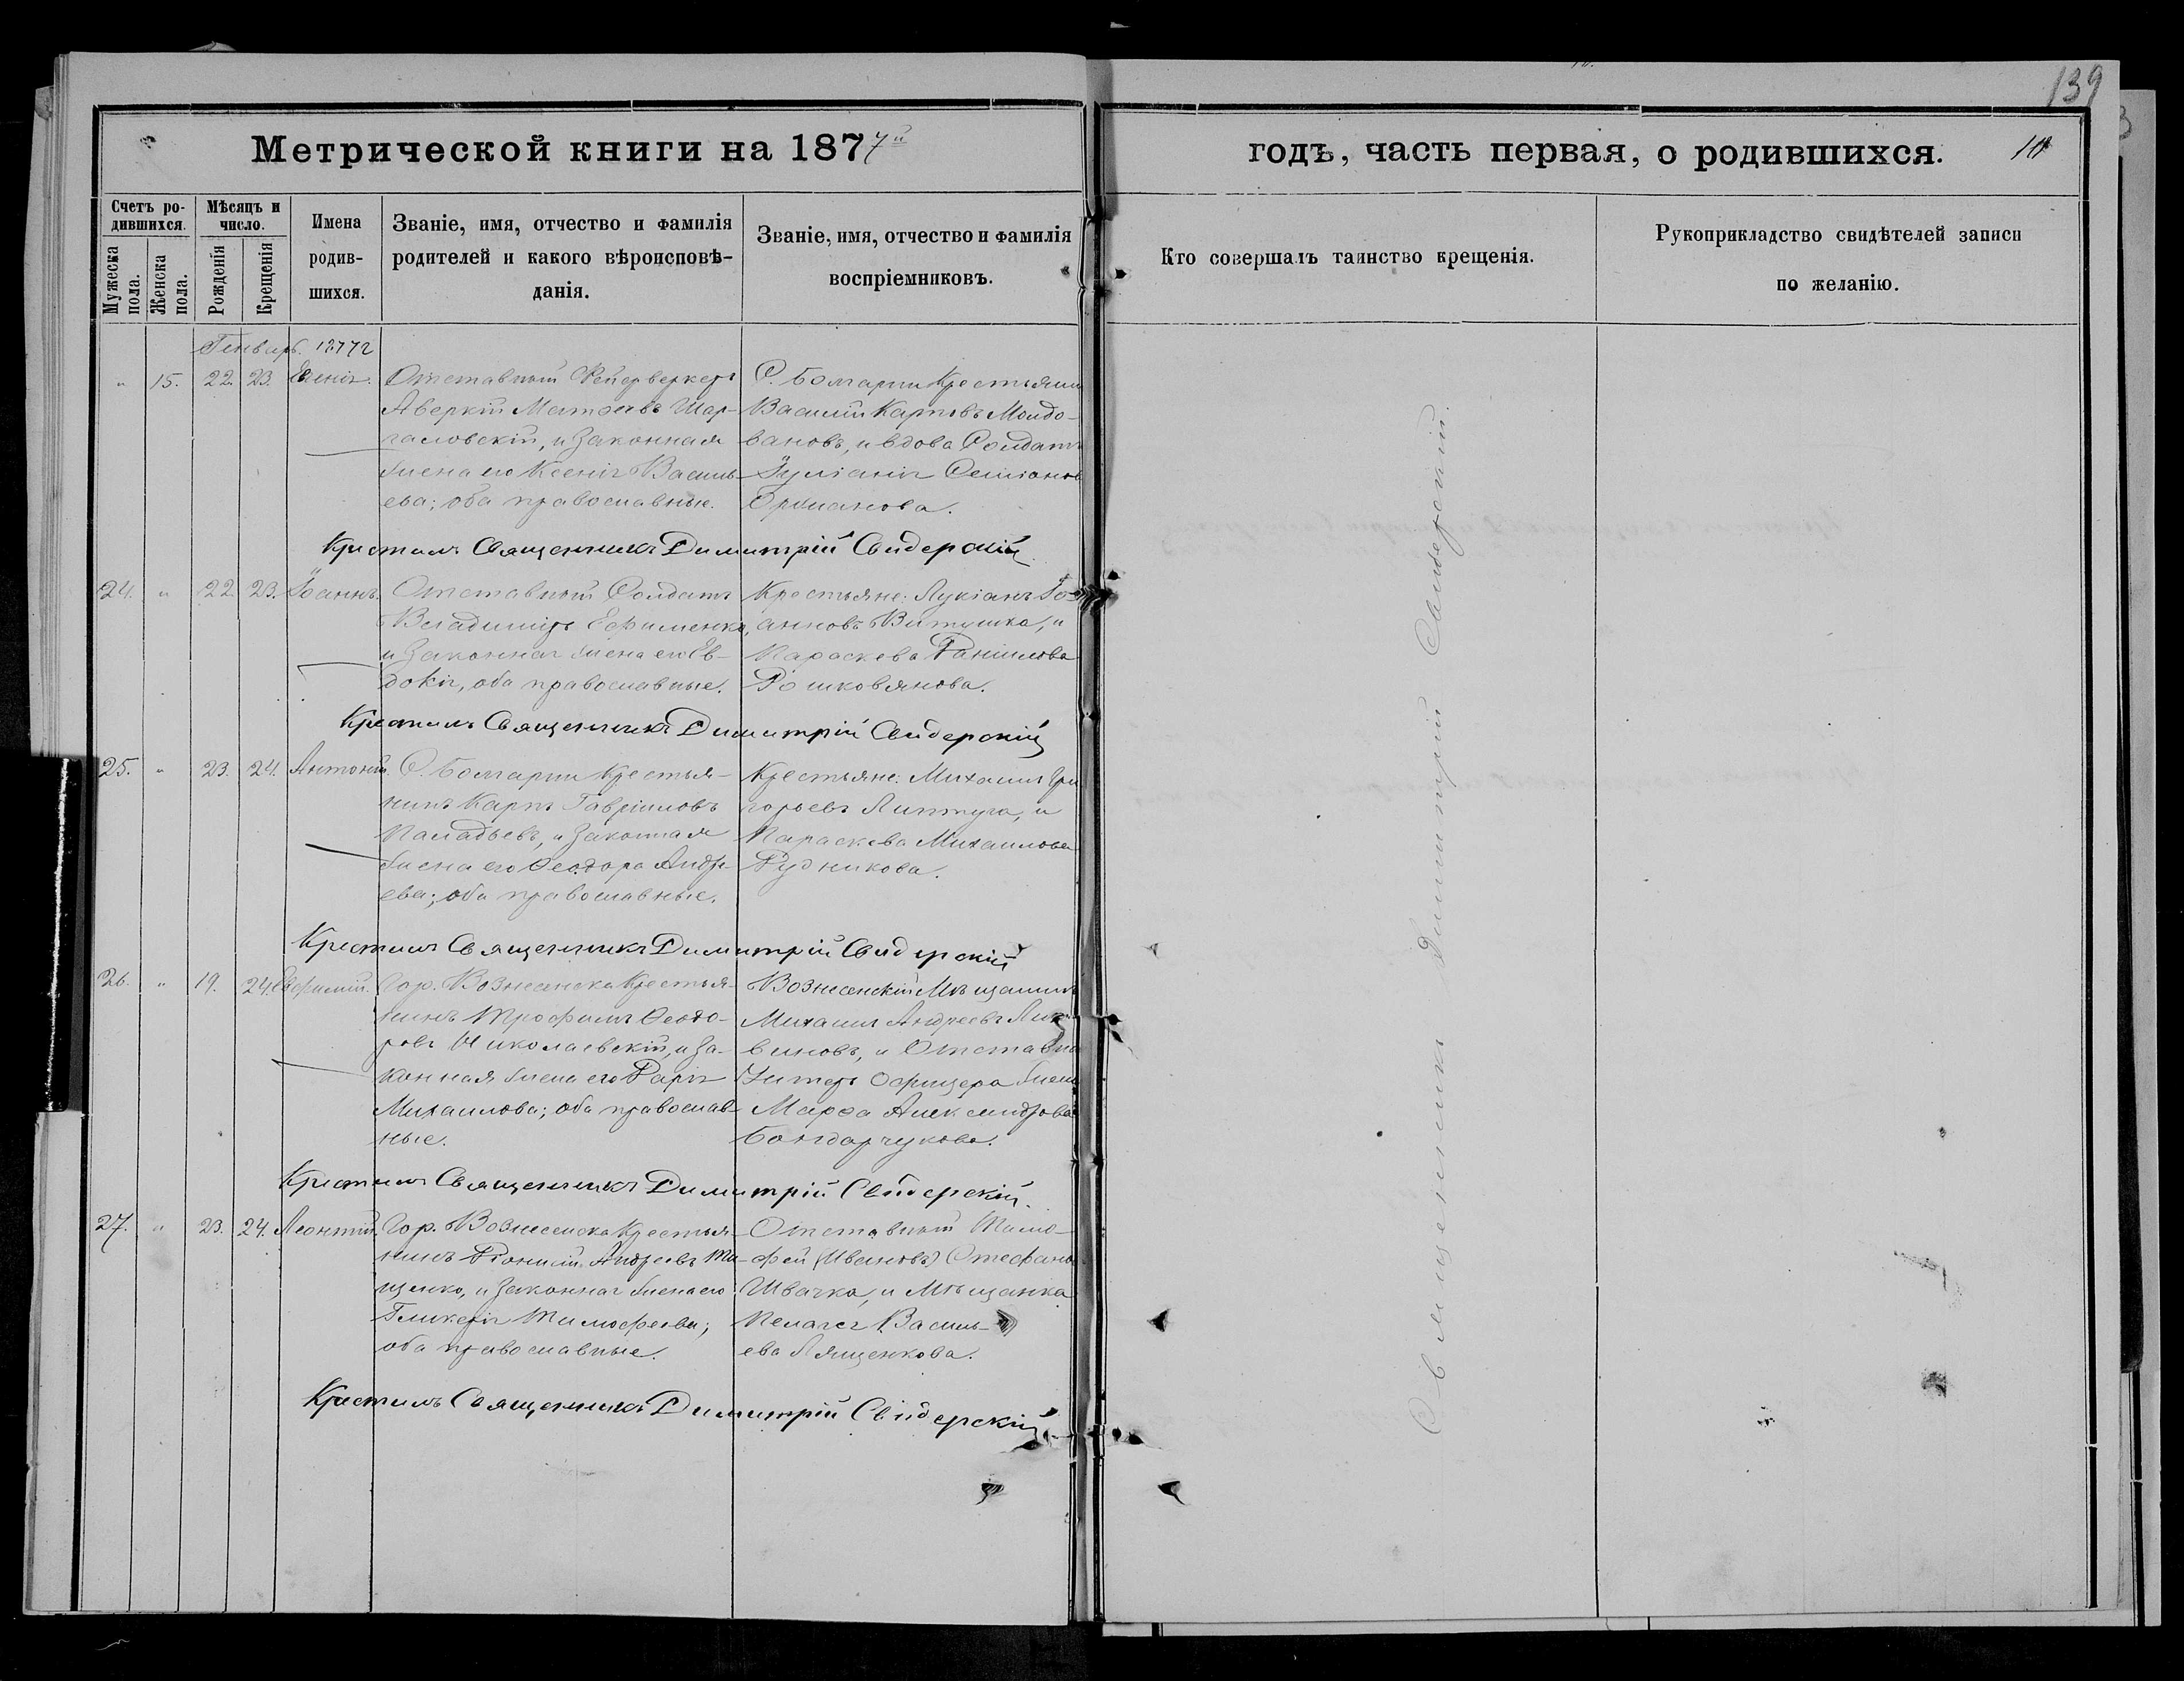 139
Метрической книги на 1877й
годъ, часть первая, о родившихся.
Счетъ ро-
дившихся.
Мужеска пола.
Женска пола.
Мѣсяцъ и
число.
Рожденія
Крещенія
Имена
родив-
шихся.
Званіе, имя, отчество и фамилія
родителей и какого вѣроисповѣ-
данія.
Званіе, имя, отчество и фамилія
воспріемниковъ.
Кто совершалъ таинство крещенія.
Рукоприкладство свидѣтелей записи
по желанію.
Генварь. 1877г
" 15. 22. 23. Ксенія.
Отставный Фейерверкеръ
Аверкій Матѳеевъ Шар-
галовскій, и законная
жена его Ксенія Василь-
ева; оба православные.
С. Болгарки Крестьянин
Василій Карповъ Молдо-
вановъ, и вдова Солдат
Іуліанія Семіонов
Орманова.
Крестилъ Священникъ Димитрій Свидерскій
24. " 22. 23. Іоаннъ.
Отставный Солдатъ
Владиміръ Ефименко,
и законная жена его Ев-
докія, оба православные.
Крестьяне: Лукіанъ Іо-
анновъ Витушка, и
Параскева Даніилова
Рошковянова.
Крестилъ Священникъ Димитрій Свидерскій
25. " 23. 24. Антоній.
С. Болгарки Крестья-
нинъ Карпъ Гавріиловъ
Паладьевъ, и законная
жена его Ѳеодора Андре-
ева; оба православные.
Крестьяне: Михаилъ Гри
горьевъ Липтуга, и
Параскева Михаилова
Рудникова.
Крестилъ Священникъ Димитрій Свидерскій
26. " 19. 24. Евфимій.
Гор. Вознесенска Крестья-
нинъ Трофимъ Ѳеодо-
ровъ Николаевскій, и за-
конная жена его Дарія
Михаилова; оба православ-
ные.
Вознесенскій Мѣщанинъ
Михаилъ Андреевъ
виновъ, и Отставн
Унтеръ Офицера жена
Марѳа Александрова
Бондарчукова.
Крестилъ Священникъ Димитрій Свидерскій.
27. " 23. 24. Леонтій.
Гор. Вознесенска Крестья-
нинъ Діонисій Андреевъ Ти-
щенко, и законная жена его
Гликерія Тимофеева;
оба православные.
Отставный Тимо-
фей (Ивановъ) Стефано
Швачка, и Мѣщанка
Пелагея Василь-
ева Лященкова.
Крестилъ Священникъ Димитрій Свидерскій
Священникъ Димитрій Свидерскій